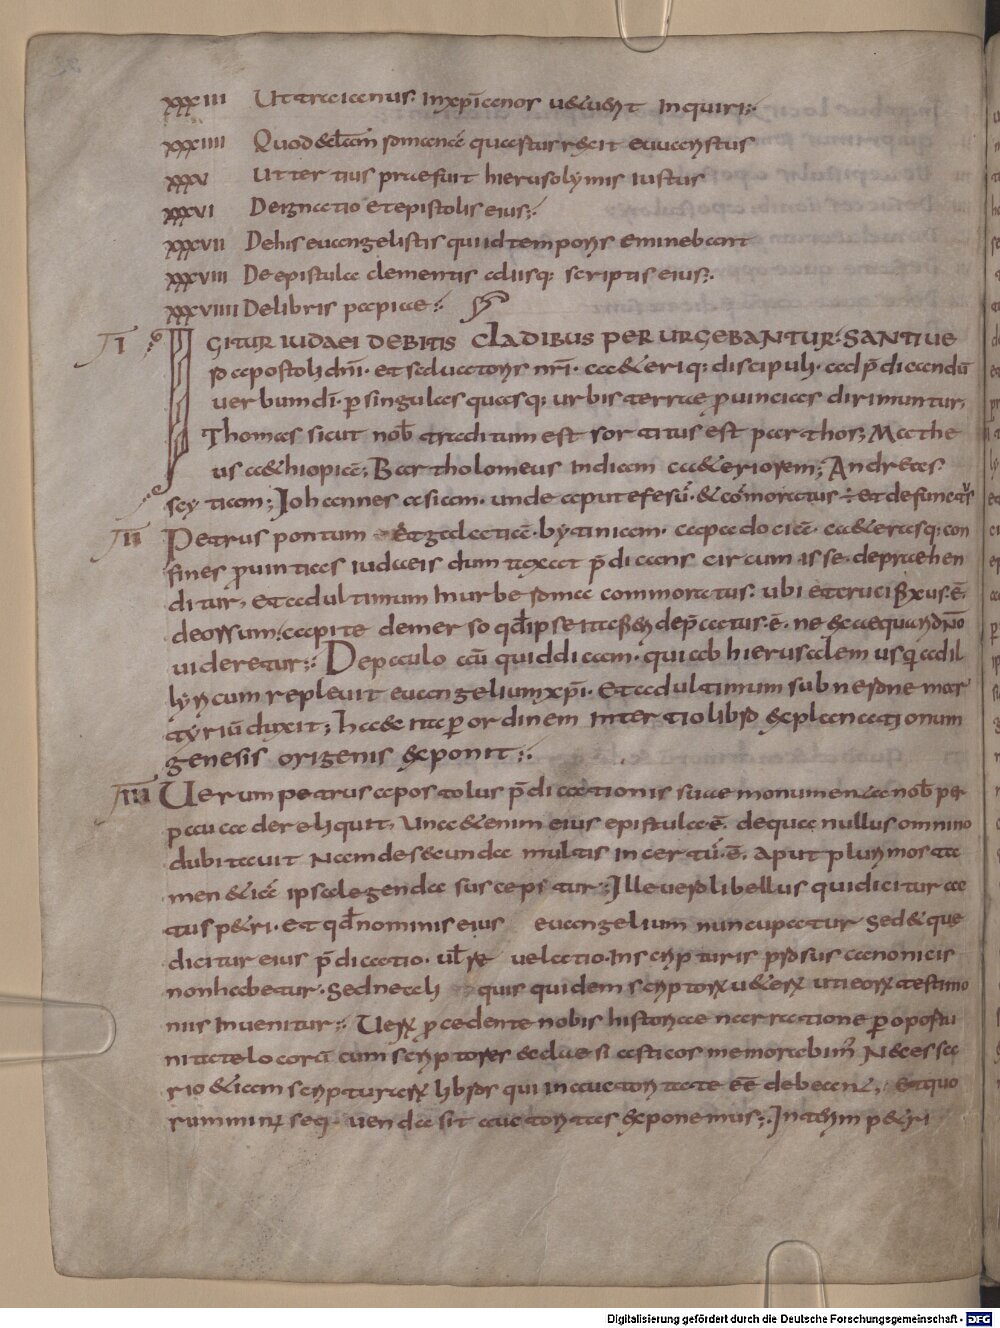 xxxiii Ut traianus inxp̄ianos u&uerit Inquiri:
xxxiiii Quod &iam romanae quaestur r&it euuaristus
xxxv Ut tertius praefuit hierusolymis iustus
xxxvi De ignatio et epistolis eius:
xxxvii De his euangelistis qui id temporis eminebant
xxxviii De epistula clementis aliisq; scriptis eius:
xxxviiii De libris papiae:
I IGITUR IUDAEI DEBITIS CLADIBUS PERURGEBANTUR: SANTI UE
ro apostoli dn̄i· et saluatoris nr̄i· ca&eriq; discipuli· ad p̄dicandū
uerbum dī· p singulas quasq; urbis terrae prouincias dirimuntur,
Thomas sicut nob̄ traditum est sortitus est parthos; Mathe
us a&hiopiā; Bartholomeus Indiam ca&eriorem; Andreas
scytiam; Iohannes asiam· unde aput efesū· & cōmoratus· Et defunctus
II Petrus pontum Et galatiā· bytiniam· capadociā· ca&erasq; con
fines prouintias iudaeis dumtaxat p̄dicans circum isse· depraehen
ditur, Et ad ultimum In urbe roma commoratus: ubi et crucifixus·ē·
deorsum capite demerso qd̄ ipse ita fieri dep̄catus·ē· ne exaequari dn̄o
uideretur: De paulo aū quid dicam· qui ab hierusalem usq; ad il
lyricum repleuit euangelium xp̄i· Et ad ultimum sub nerone mar
tyriū duxit; haec ita p ordinem inter tio libro explanationum
genesis origenis exponit:
III Uerum petrus apostolus p̄dicationis suae monumenta nob̄ per
pauca dereliquit, Una &enim eius epistula·ē· de qua nullus omnino
dubitauit Nam de secunda multis incertū·ē· aput plurimos ta
men &iā ipsa legenda suscepitur: Ille uero libellus qui dicitur ac
tus p&ri· Et qd̄ nominis eius euangelium nuncupatur Sed & que
dicitur eius p̄dicatio· uel actio· In scripturis prorsus canonicis
non habetur· Sed ne tali quis quidem scriptorum u&erum uti eorum testimo
niis Inuenitur: Uerum procedente nobis historiae narratione p oportu
nitate locorū cum scriptores ecclesiasticos memorabimur Necessa
rio &iam scripturarum libros qui in auctoritate eē debeant, Et quo
rum minus sequenda sit auctoritas exponemus: Interim p&ri
Digitalisierung gefördert durch die Deutsche Forschungsgemeinschaft - DFG